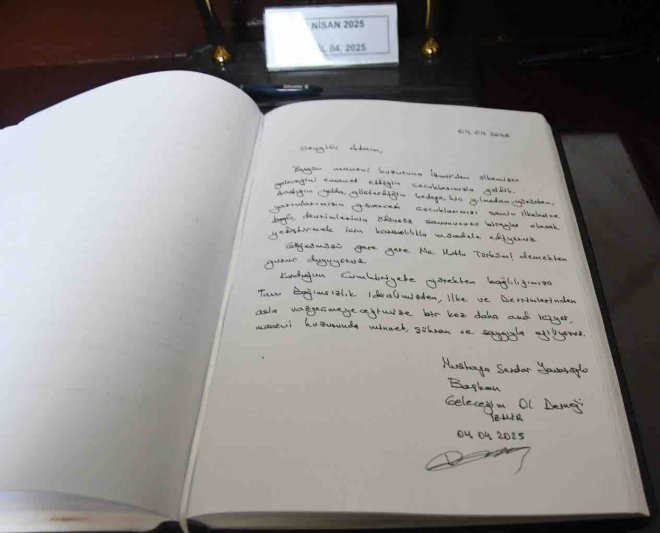 NİSAN 2025
04. 2025
04.04.2025
Saygılı Atam,
Bugün manevi huzuruna İzmir'den ülkemizin
geleceğini emanet ettiğin çocuklarımızla geldik.
Açtığın yolda, gösterdiğin hedefe, hiç yılmadan yürürken,
yarınlarımızın güvencesi çocuklarımızı senin ilkelerine
bağlı, devrimlerinin ödünsüz savunucusu bireyler olarak
yetiştirmek için kararlılıkla mücadele ediyoruz.
Göğsümüzü gere gere Ne Mutlu Türküm! demekten
gurur duyuyoruz.
Kurduğun Cumhuriyete yürekten bağlılığımıza
Tam Bağımsızlık idealimizden, İlke ve Devrimlerinden
asla vazgeçmeyeceğimize bir kez daha and içiyor,
manevi huzurunda minnet, şükran ve saygıyla eğiliyoruz.
Mustafa Serdar
Başkan
Geleceğim Ol Derneği
İZMİR
04.04.2025